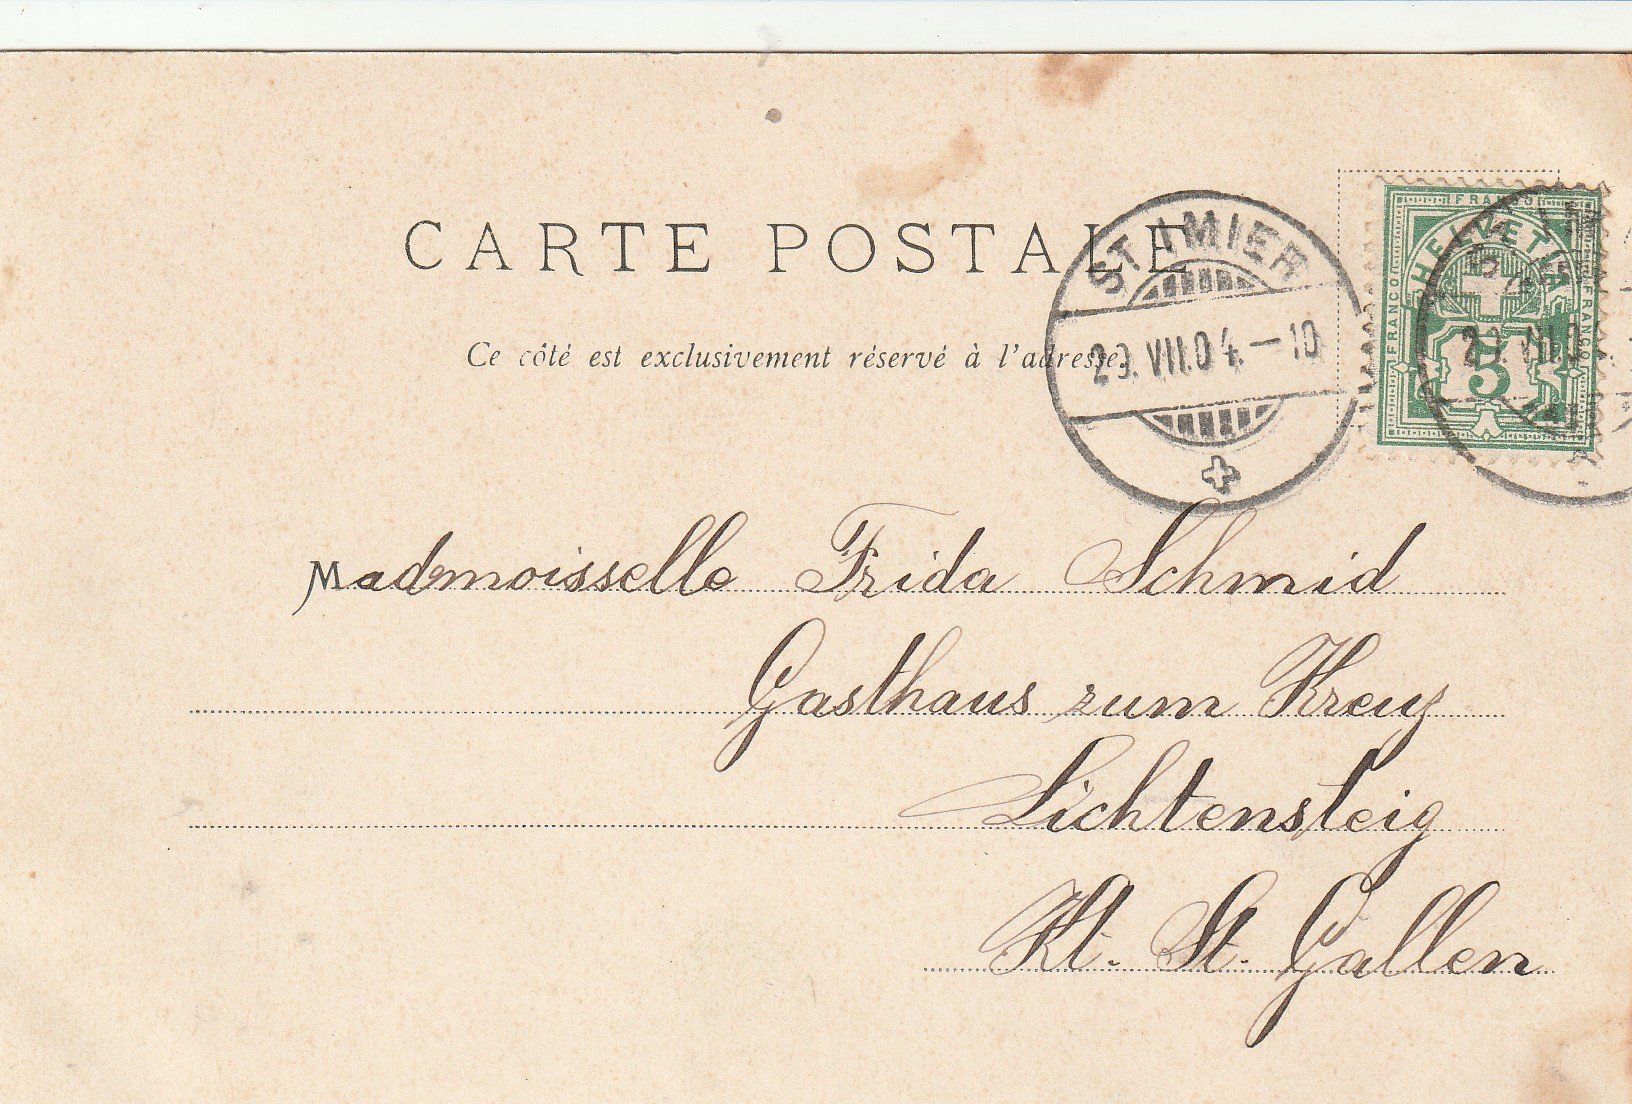 CARTE POSTALE
Ce côté est exclusivement réservé à l'adresse.
ST. IMIER
29. VII. 04. — 10
FRANCO
HELVETIA
FRANCO
FRANCO
5
29. VII. 0
Mademoisselle Frida Schmid
Gasthaus zum Kreuz
Lichtensteig
Kt. St. Gallen